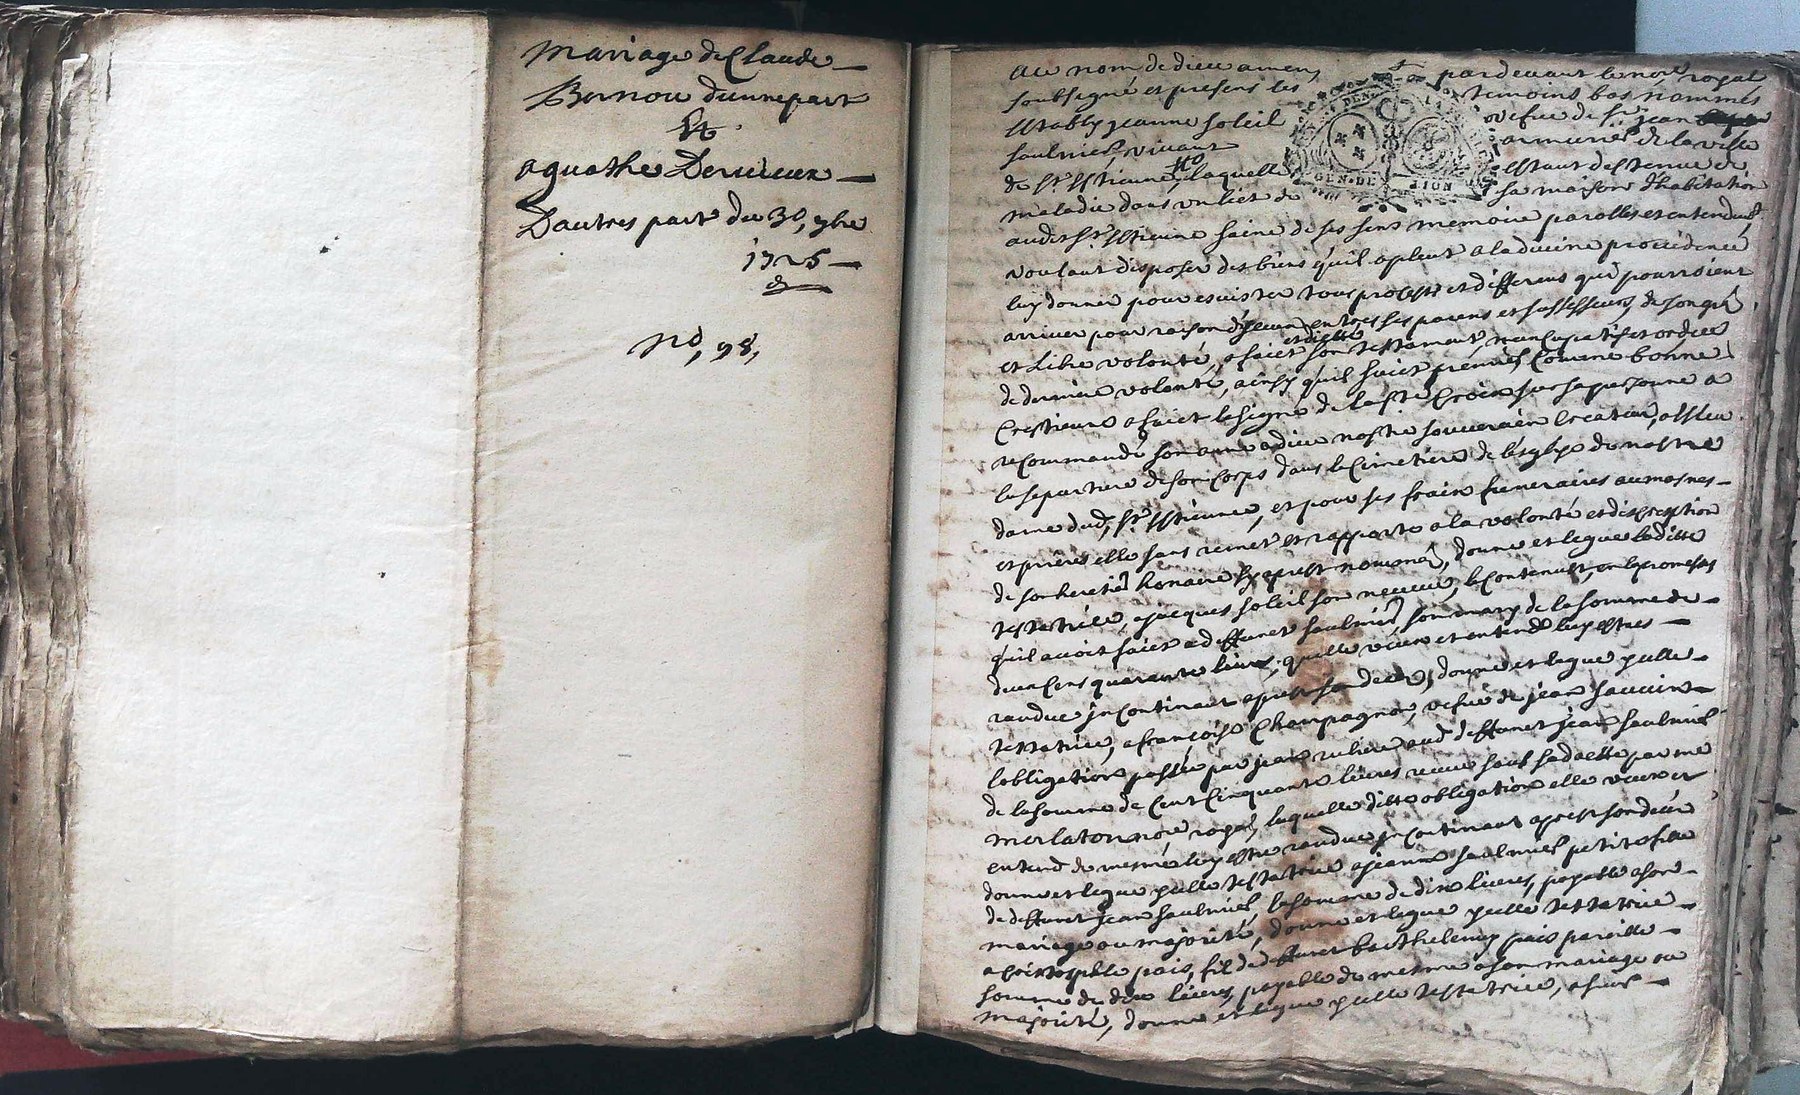 Mariage de Claude
Bernou dunne part
Et
aguathe Derieux
Dautres part du 30, 9bre
1725
No, 98,
Au nom de dieu amen, pardevant le nore royal
soubsigné et presens les temoins bas nommés
establyt jeanne soleil vefue de Sr jean
saulnier, vivant armurier de la ville
de St Estienne, laquelle estant destenue de
maladie dans un lict de sa maison d'habitation
audit St Estienne saine de ses sens memoire parolles et entendemt
voulant disposer des biens qu'il a pleut a la divine providence
luy donner pour esuister tous proces et differens qui pourroient
arriver pour raison d'yceux entre ses parens et successeurs, de son gré
et libre volonté, a faict et dicté son testament nuncupatif et ordre
de derniere volonté, ainsy qu'il suict premier comme bonne
Crestienne a faict le signe de la ste Croix sur sa personne a
recommandé son ame a dieu nostre souuerain Createur, esleu
la sepulture de son corps dans le cimetiere de l'eglise de nostre
dame dud, St Estienne, et pour ses frais funeraires aumosnes
et prieres elle s'ans remet et rapporte a la volonté et discreption
de son heretier bas nommé, donne et legue ladite
testatrice, a jacques soleil son neveu, le contenu en la promesse
qu'il avoit faict a deffunct saulnier, son mary de la somme de
deux cens quarante livres, qu'elle veut et entend luy estre
randue incontinant apres son deces, donne et legue ycelle
testatrice, a françoise Champagnon, vefue de jean sauuin
l'obligation passée par jean riviere aud deffunct jean saulnier
de la somme de cent cinquante livres receue sous sa datte par me
merlaton nore royal, laquelle ditte obligation elle veut et
entend de mesme luy estre randue incontinant apres son deces
donne et legue ycelle testatrice a jeanne saulnier petite fille
de deffunct jean saulnier, la somme de dix livres, payable a son
mariage ou majorité, donne et legue ycelle testatrice
a Cristophle pais, fils de deffunct barthelemy pais pareille
somme de dix livres, payable de mesme a son mariage ou
majorité, donne et legue ycelle testatrice, a
GEN. DE LION